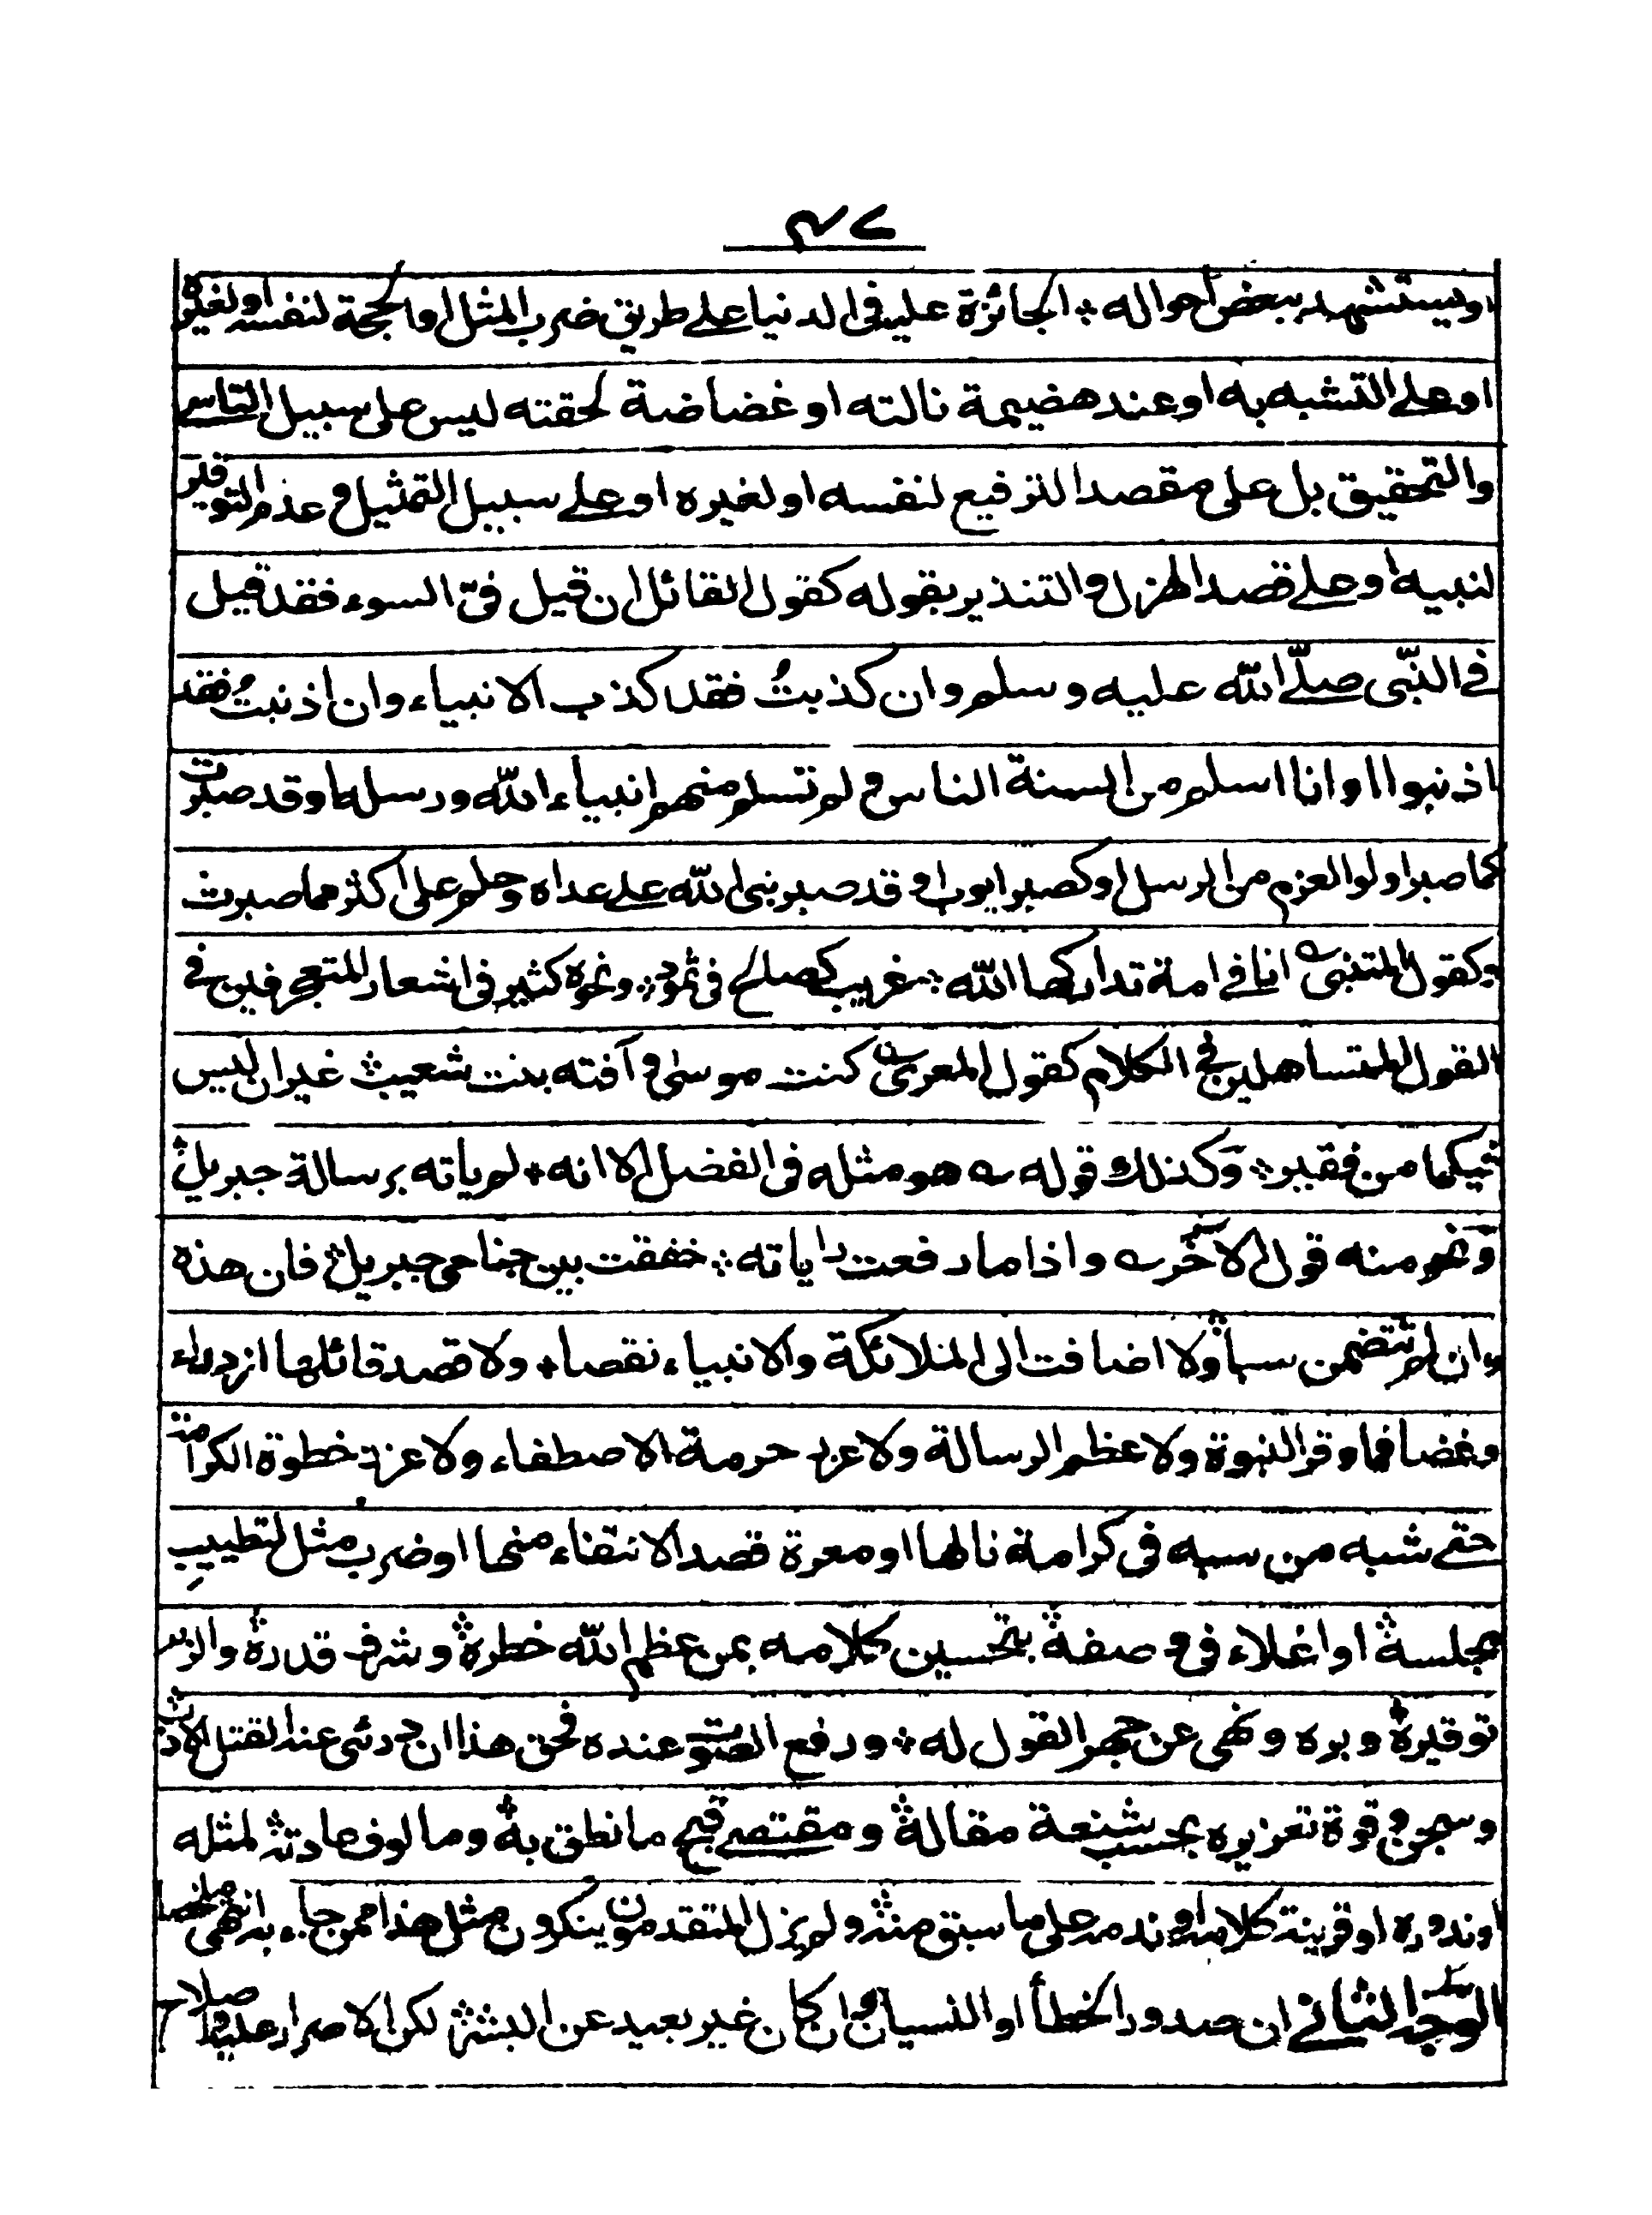 ٤٧
او يستشهد ببعض احواله ، الجائزة عليه فى الدنيا على طريق ضرب المثل او الحجة لنفسه او لغيره
او على التشبه به او عند هضيمة نالته او غضاضة لحقته ليس على سبيل التاسي
والتحقيق بل على مقصد الترفيع لنفسه او لغيره او على سبيل التمثيل و عدم التوقير
لنبيه او على قصد الهزل و التنذير بقوله كقول القائل ان قيل فىّ السوء فقد قيل
في النّبى صلّے الله عليه وسلم وان كذبتُ فقد كذب الانبياء وان اذنبتُ فقد
اذنبوا او انا اسلم من السنة الناس و لم تسلم منهم انبياء الله ورسله او قد صبرت
كما صبر اولوا العزم من الرسل او كصبر ايوب او قد صبر نبى الله على عداه وحلم على اكثر مما صبرت
وكقول المتنبى انا في امة تداركها الله ؞ غريب كصالح فى ثمود ؞ ونحوه كثير فى اشعار المتعجرفين في
القول المتساهلين في الكلام كقول المعرى كنت موسى وآفته بنت شعيب ؞ غير ان ليس
فيكما من فقير ؞ وكذلك قوله هو مثله فى الفضل الا انه ؞ لم ياته برسالة جبريل ؞
ونحو منه قول الآخر واذا ما رفعت راياته ؞ خفقت بين جناحى جبريل ؞ فان هذه
وان لم تتضمن سبا ولا اضافت الى الملائكة والانبياء نقصا ، ولا قصد قائلها ازدراء
وغضا فما وقر النبوة ولا عظم الرسالة ولا عزر حرمة الاصطفاء ولا عزز خطوة الكرامة
حتے شبه من سبه فى كرامة نالها او معرة قصد الانتقاء منها او ضرب مثل لتطييب
مجلسه او اغلاء فى صفة بتحسين كلامه بمن عظم الله خطره وشرف قدره والزم
توقيره وبره ونهى عن جهر القول له ؞ ورفع الصوت عنده فحق هذا ان درئ عند القتل الادب
وسجن و قوة تعزيره بحسب شنعة مقاله ومقتضے قبح ما نطق به ومالوف عادته لمثله
او ندوره او قرينة كلامه او ندمه على ما سبق منه ولم يزل المتقدمون ينكرون مثل هذا ممن جاء به انتهى ملخصا
الوجه الثاني ان صدور الخطأ او النسيان و ان كان غير بعيد عن البشر ؞ لكن الاصرار عليه و اصلاح